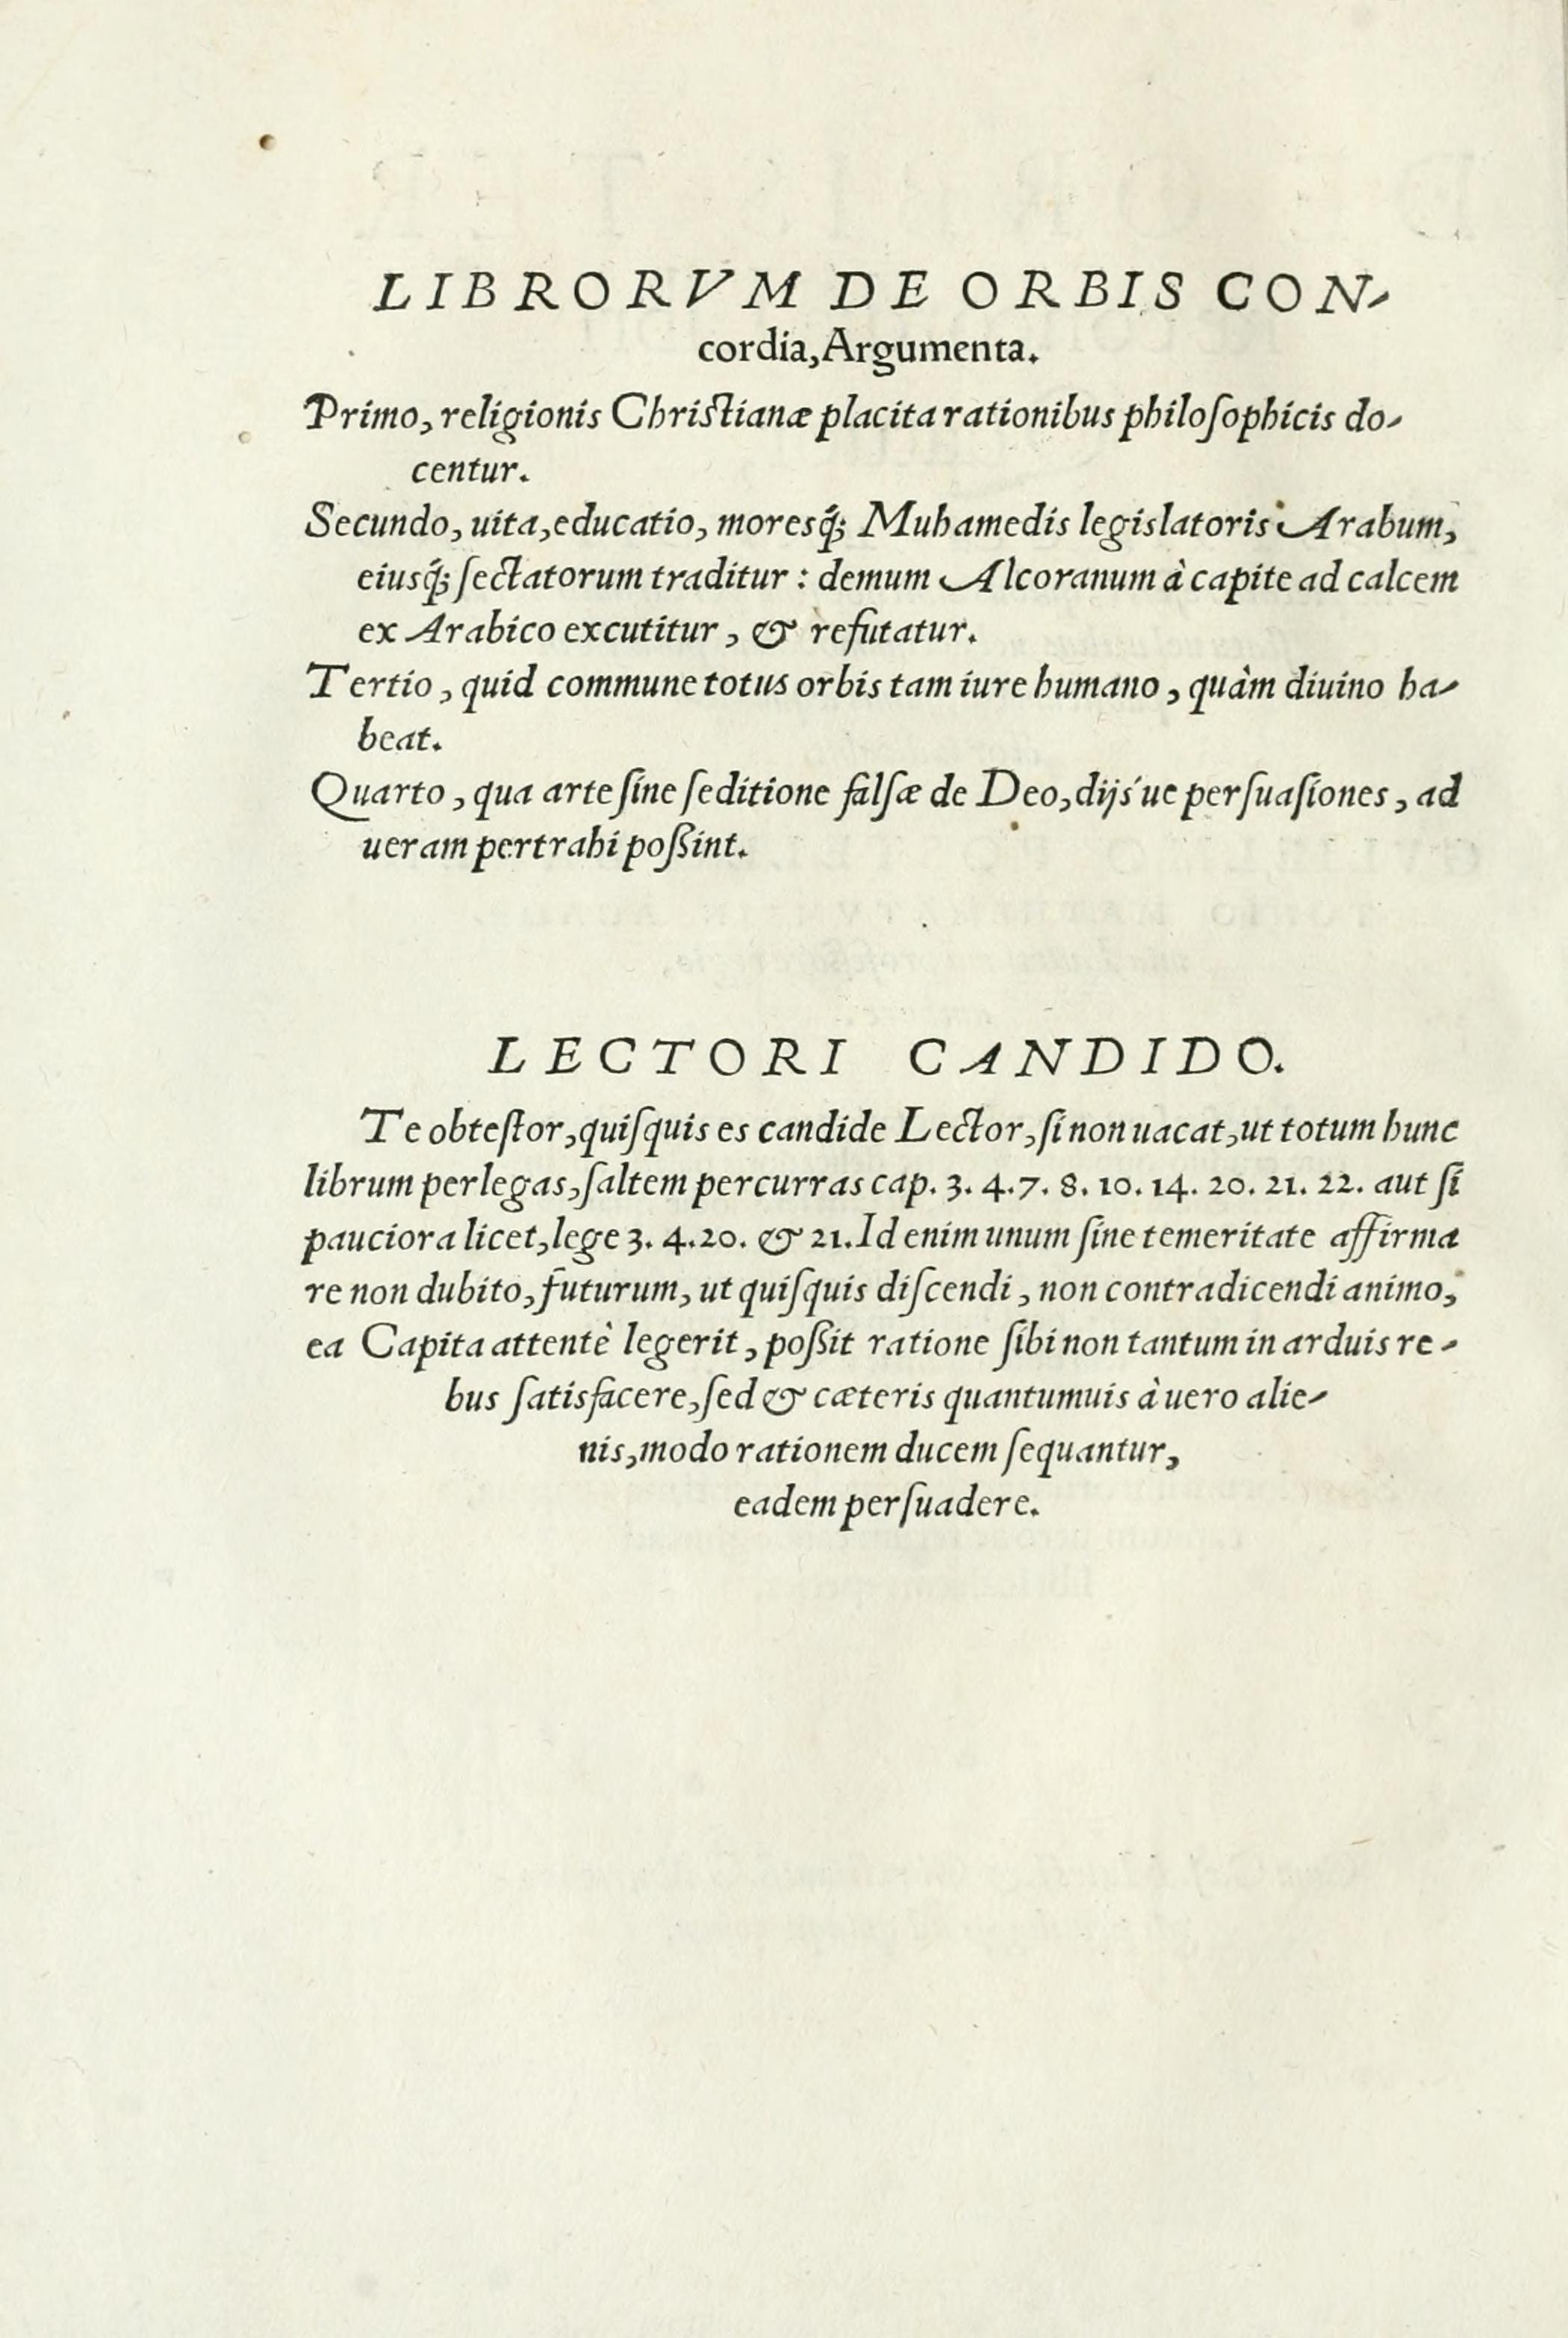 LIBRORVM DE ORBIS CON-
cordia, Argumenta.
Primo, religionis Christianæ placita rationibus philoſophicis do-
centur.
Secundo, uita, educatio, moresq́; Muhamedis legislatoris Arabum,
eiusq́; ſectatorum traditur: demum Alcoranum à capite ad calcem
ex Arabico excutitur, & refutatur.
Tertio, quid commune totus orbis tam iure humano, quàm diuino ha-
beat.
Quarto, qua arte ſine ſeditione falſæ de Deo, dijs'ue perſuaſiones, ad
ueram pertrahi poßint.
LECTORI CANDIDO.
Te obteſtor, quiſquis es candide Lector, ſi non uacat, ut totum hunc
librum perlegas, ſaltem percurras cap. 3. 4. 7. 8. 10. 14. 20. 21. 22. aut ſi
pauciora licet, lege 3. 4. 20. & 21. Id enim unum ſine temeritate affirma
re non dubito, futurum, ut quiſquis diſcendi, non contradicendi animo,
ea Capita attentè legerit, poßit ratione ſibi non tantum in arduis re-
bus ſatisfacere, ſed & cæteris quantumuis à uero alie-
nis, modo rationem ducem ſequantur,
eadem perſuadere.